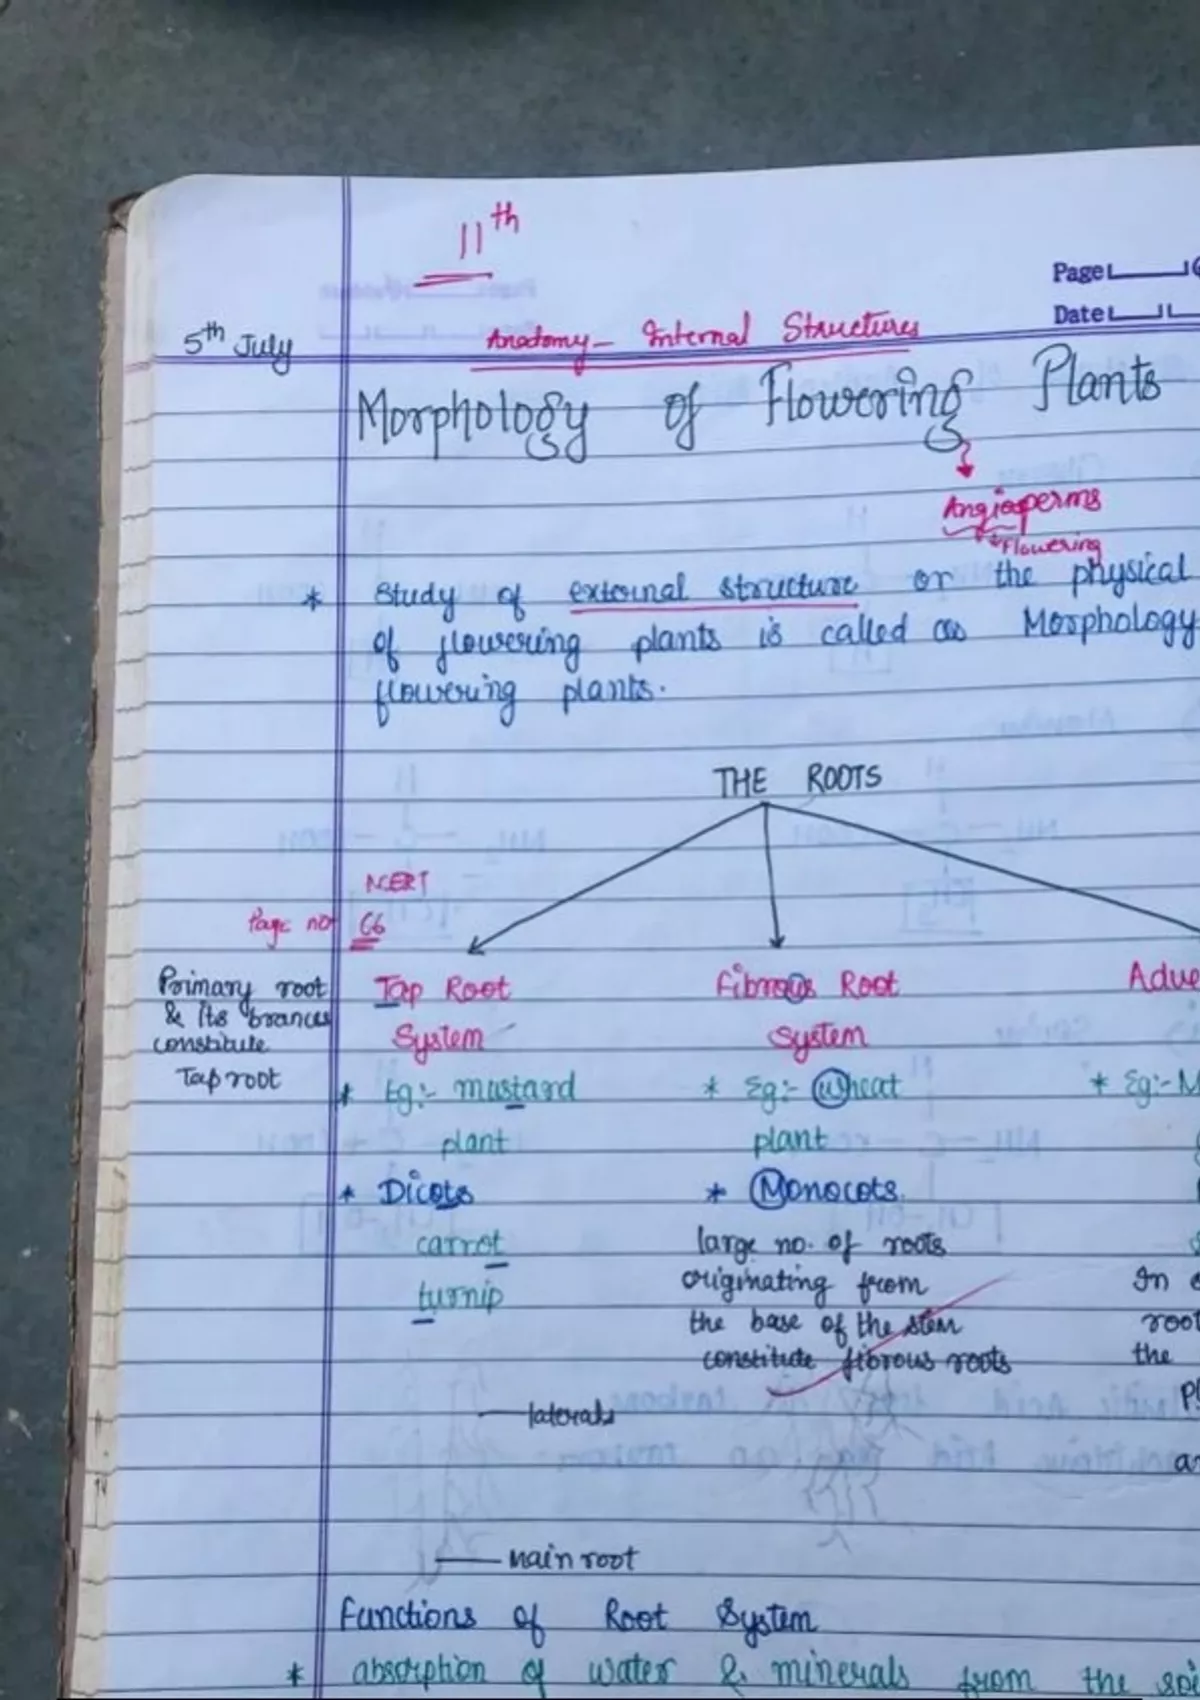 11th
Page
Date
5th July
Anatomy - Internal Structures
Morphology of Flowering Plants
Angiosperms
Flowering
* Study of external structure or the physical
of flowering plants is called as Morphology
flowering plants.
THE ROOTS
NCERT
Page no 66
Primary root
& its brances
constitute
Tap root
Tap Root
System
* Eg:- mustard
plant
* Dicots
carrot
turnip
Fibrous Root
System
* Eg:- Wheat
plant
* Monocots.
large no. of roots
originating from
the base of the stem
constitute fibrous roots
Adve
* Eg:- M
In
root
the
laterals
main root
Functions of Root System
* absorption of water & minerals from the soi